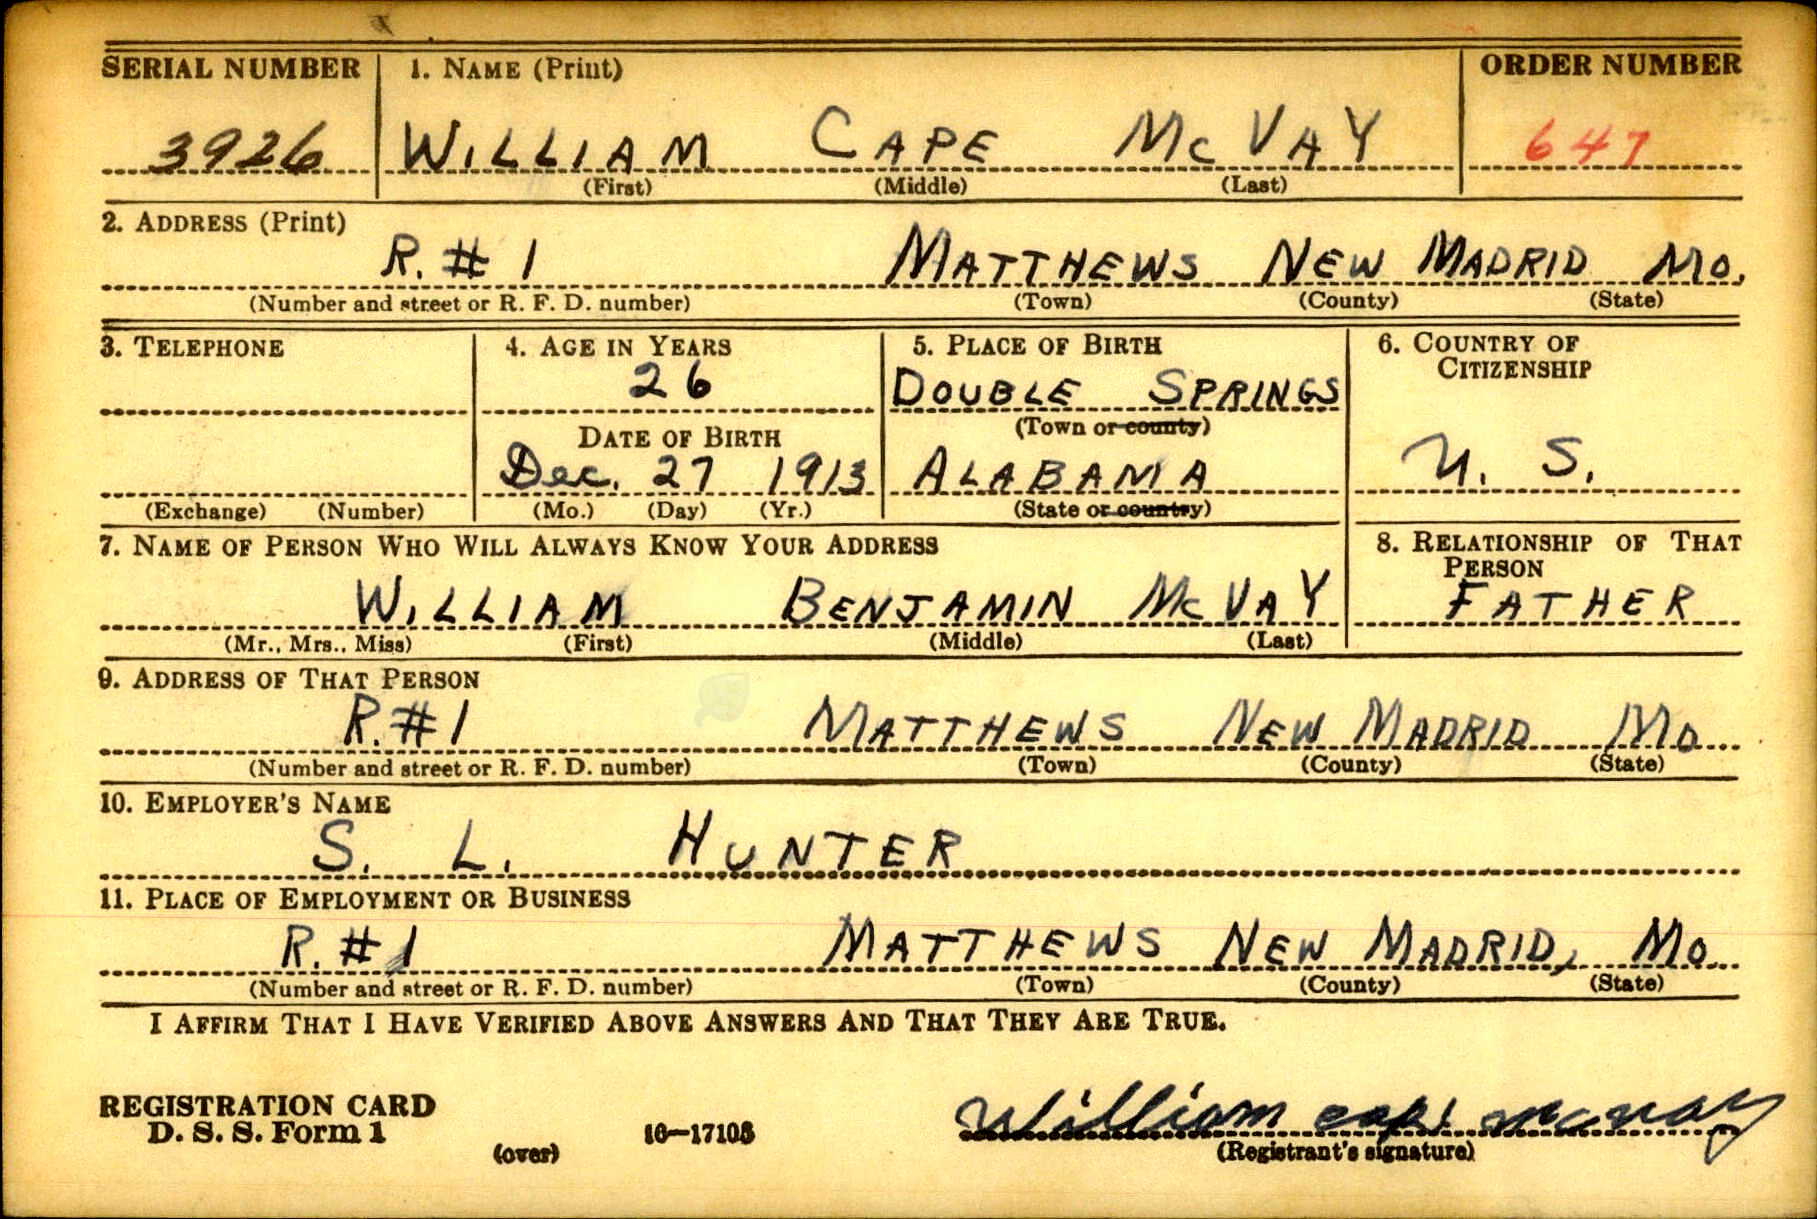 SERIAL NUMBER 1. NAME (Print) ORDER NUMBER
3926 WILLIAM CAPE McVAY 647
(First) (Middle) (Last)
2. ADDRESS (Print)
R. # 1 MATTHEWS NEW MADRID MO.
(Number and street or R. F. D. number) (Town) (County) (State)
3. TELEPHONE 4. AGE IN YEARS 5. PLACE OF BIRTH 6. COUNTRY OF
CITIZENSHIP
26 DOUBLE SPRINGS
(Town or county)
DATE OF BIRTH
Dec. 27 1913 ALABAMA U. S.
(Exchange) (Number) (Mo.) (Day) (Yr.) (State or country)
7. NAME OF PERSON WHO WILL ALWAYS KNOW YOUR ADDRESS 8. RELATIONSHIP OF THAT
PERSON
WILLIAM BENJAMIN McVAY FATHER
(Mr., Mrs., Miss) (First) (Middle) (Last)
9. ADDRESS OF THAT PERSON
R. # 1 MATTHEWS NEW MADRID MO
(Number and street or R. F. D. number) (Town) (County) (State)
10. EMPLOYER'S NAME
S. L. HUNTER
11. PLACE OF EMPLOYMENT OR BUSINESS
R. # 1 MATTHEWS NEW MADRID, MO
(Number and street or R. F. D. number) (Town) (County) (State)
I AFFIRM THAT I HAVE VERIFIED ABOVE ANSWERS AND THAT THEY ARE TRUE.
REGISTRATION CARD
D. S. S. Form 1 16—17105 William cape mcvay
(over) (Registrant's signature)